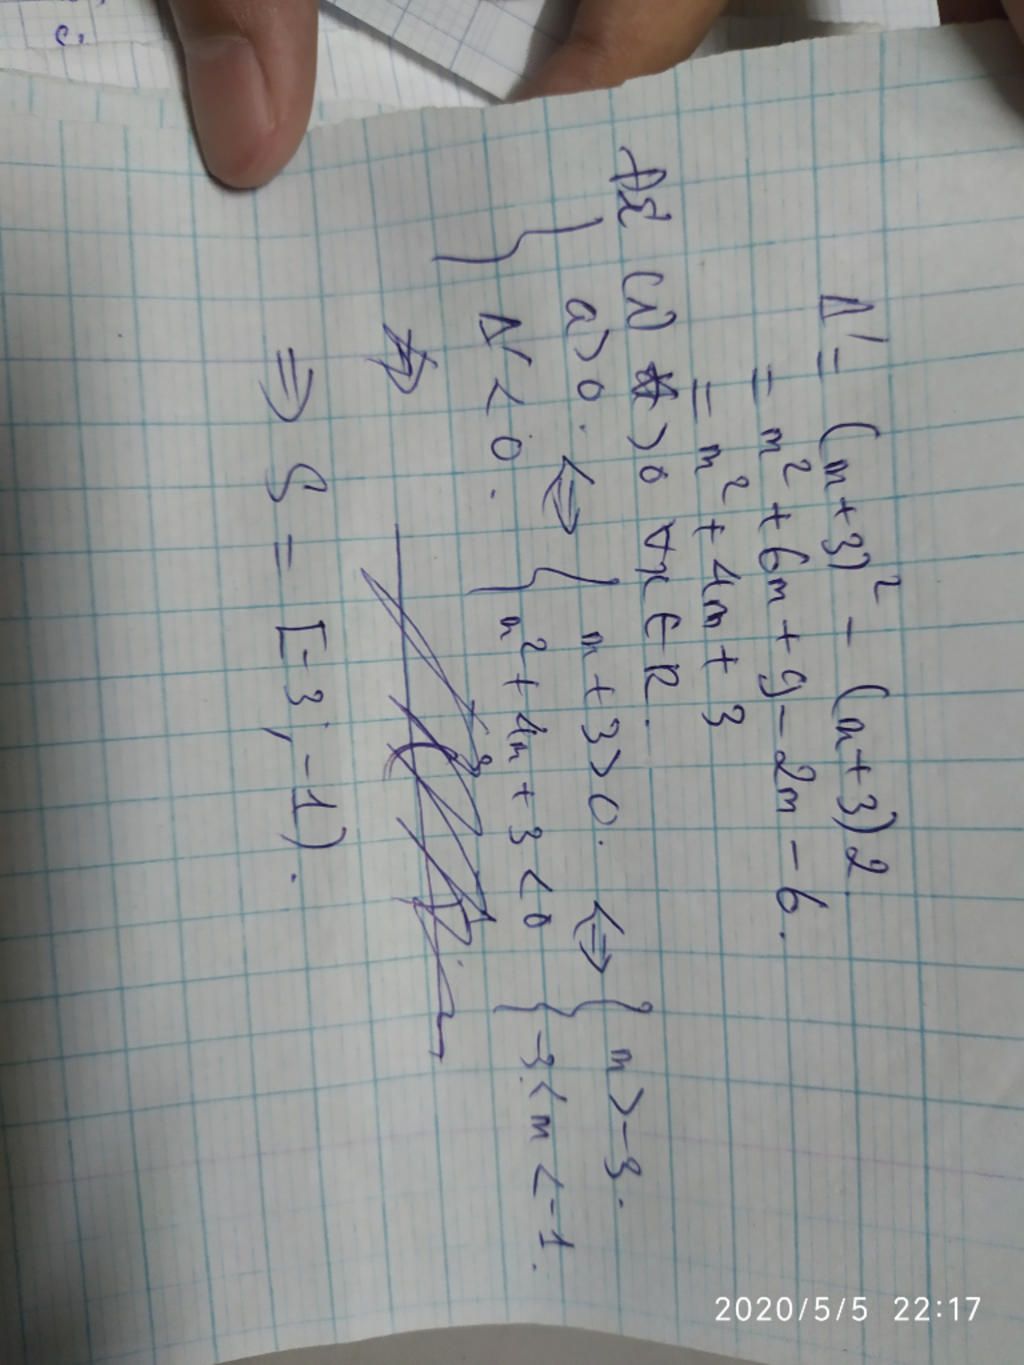 c.
Δ' = (m+3)² - (m+3)2.
= m² + 6m + 9 - 2m - 6.
= m² + 4m + 3
Để (1) > 0 ∀x ∈ R.
{ a > 0. ⇔ { m + 3 > 0. ⇔ { m > -3.
Δ' < 0. m² + 4m + 3 < 0 -3 < m < -1.
⇒ S = [-3; -1).
2020/5/5 22:17